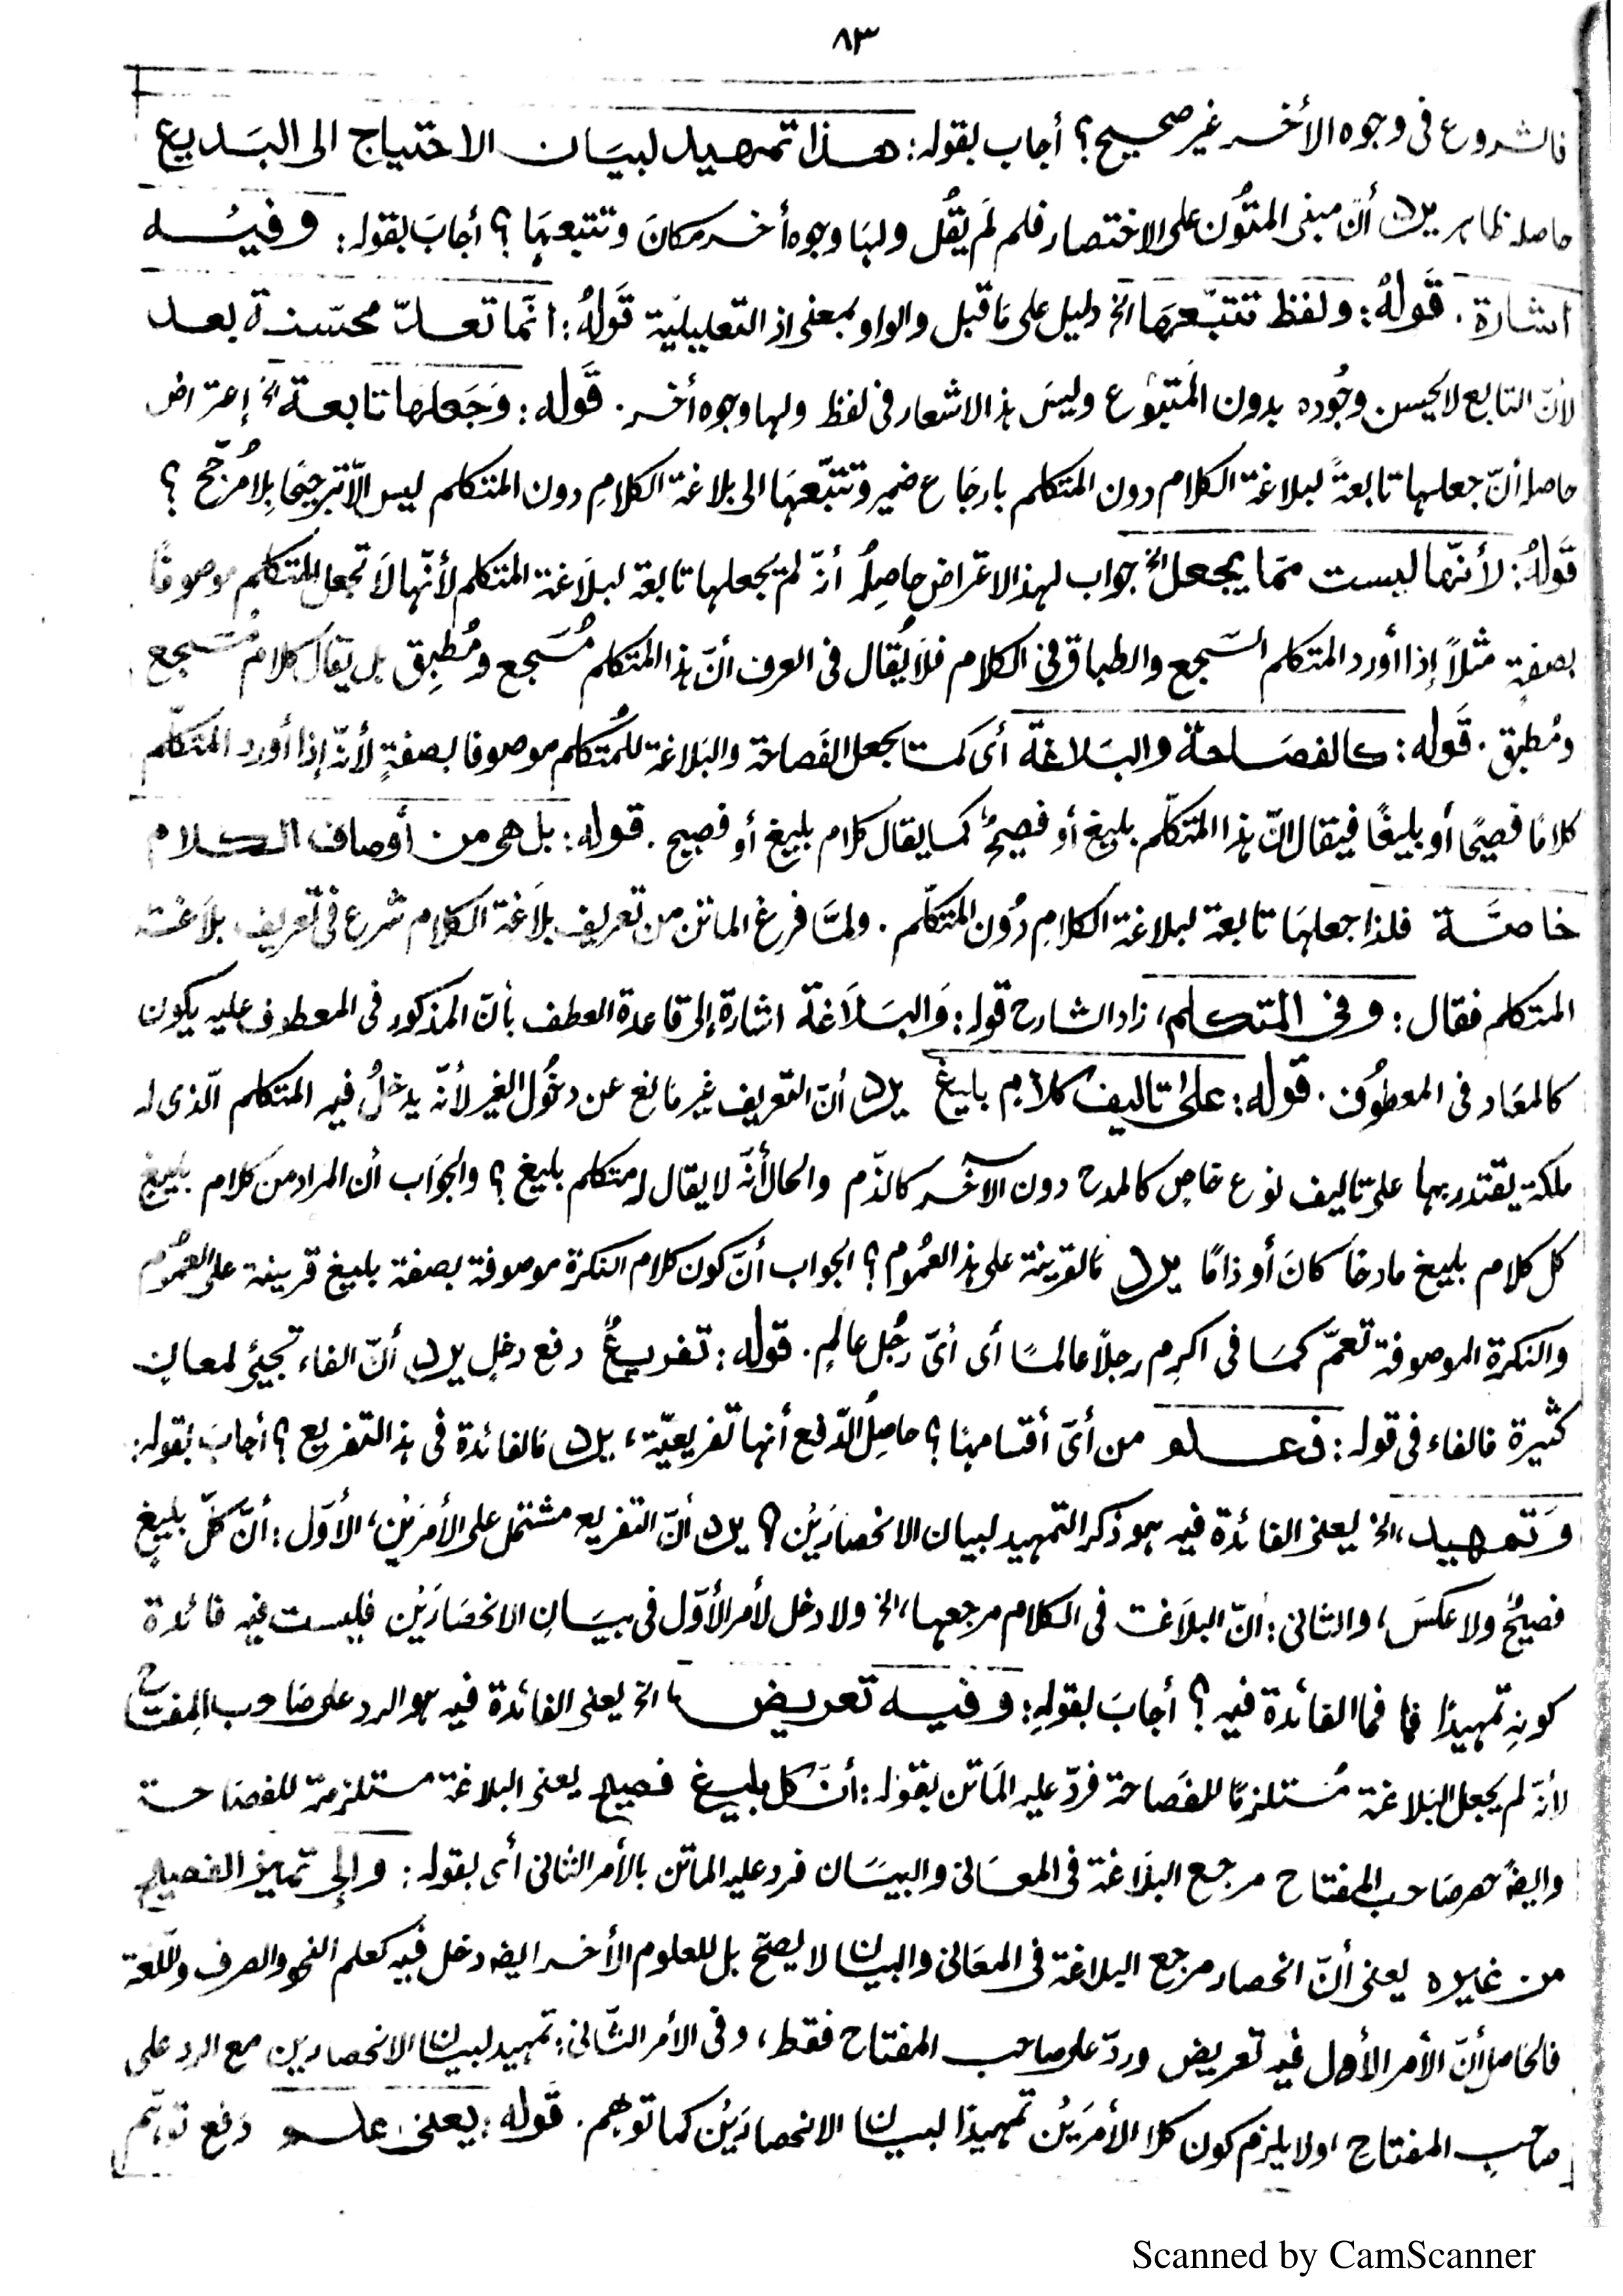 ٨٣
فالشروع فى وجوه الأخر غير صحيح؟ أجاب بقوله: هذا تمهيد لبيان الاحتياج الى البديع
حاصله ظاهر يرد أنّ مبنى المتُون على الاختصار فلم لم يقُل ولها وجوه أخر مكانَ وتتبعهَا؟ أجابَ بقوله: وفيه
اشارة. قَولهُ: ولفظ تتبّعهَا الخ دليل على مَا قبل والواو بمعنى اذ التعليلية قَولهُ: انّما تعدّ محسّنة بعد
لأنّ التابع لا يحسن وجُوده بدون المَتبُوع وليسَ هذا الاشعار فى لفظ ولها وجوه أخر. قَوله: وَجَعلهَا تابعة الخ إعتراض
حاصله أنّ جعلها تابعةً لبلاغة الكلام دون المتكلم بارجَاع ضمير وتتبّعهَا الى بلاغة الكلامِ دون المتكلم ليس الّا ترجيحًا بِلا مُرَجّح؟
قَولهُ: لأنّها ليست ممّا يجعل الخ جواب لهذا الاعتراض حاصِلُه أنّه لم يجعلها تابعة لبلَاغة المتكلم لأنّها لَا تجعل المتكلم موصوفًا
بصفةٍ مثلاً إذا أورد المتكلم السّجع والطباق فى الكلام فلَا يُقال فى العرف أنّ هذا المتكلم مُسَجع ومُطبِق بل يقال كلام مُسَجع
ومُطبق. قَوله: كالفصَاحة والبَلاغة أى كما يجعل الفَصاحة والبَلاغة للمُتكلم موصوفا بصفةٍ لأنّه إذا أورد المتكلّم
كلامًا فصيحًا أو بليغًا فيقال انّ هذا المتكلّم بليغ أو فصيحٌ كما يقال كلام بليغ أو فصيح. قوله: بل هى من أوصاف الكلام
خاصَّة فلذا جعلهَا تابعة لبلاغة الكلامِ دُون المتكلّم. ولمَّا فرغ الماتن من تعريف بلَاغة الكلام شرع فى تعريف بلَاغة
المتكلم فقال: وفى المتكلم، زاد الشارح قوله: وَالبَلَاغة اشارة إلى قاعدة العطف بأنّ المذكور فى المعطوف عليه يكون
كالمعَاد فى المعطُوف. قَوله: على تاليف كلام بليغ يرد أنّ التعريف غير مَانع عن دخُول الغير لأنّه يدخلُ فيه المتكلم الّذى له
ملكة يقتدر بها على تاليف نوع خاصٍ كالمدح دون الآخَر كالذّم والحال أنّه لا يقال له متكلم بليغ؟ والجوَاب أن المراد من كلام بليغ
كل كلام بليغ مادحًا كانَ أو ذامًا يرد مَا القرينة على هذا العُمُوم؟ الجواب أنّ كون كلام النكرة موصوفة بصفة بليغ قرينة على العمُوم
والنكرة الموصوفة تعمّ كمَا فى اكرِم رجلاً عالمًا أى أىّ رجُل عالمٍ. قوله: تفريعٌ دفع دخلٍ يرد أنّ الفاء تجيئ لمعانٍ
كثيرة فالفاء فى قوله: فعلم من أىّ أقسامهَا؟ حاصِلُ الدّفع أنها تفريعيّة، يرد مَا الفائدة فى هذا التفريع؟ أجابَ بقوله:
وَتمهيد، الخ يعنى الفائدة فيه هو ذكر التمهيد لبيان الانحصارَيْن؟ يرد أنّ التفريع مشتمل على الأمرَيْن، الأوّل: أنّ كلّ بليغٍ
فصيحٌ ولا عكسَ، والثانى: أنّ البلَاغت فى الكلام مرجعها، الخ ولا دخل لأمر الأوّل فى بيَان الانحصَارَيْن فليست فيه فائدة
كونِه تمهيدًا فما الفائدة فيه؟ أجابَ بقولهِ: وفيه تعريض، الخ يعنى الفائدة فيه هو الرد على صَاحب المِفتاح
لأنّه لم يجعل البَلاغة مُستلزمًا للفصَاحة فردّ عليه المَاتن بقوله: أنّ كل بليغ فصيح يعنى البلاغة مستلزمة للفصَاحة
وايضًا حصر صَاحب المفتاح مرجع البلَاغة فى المعَانى والبيَان فرد عليه الماتن بالأمر الثانى أى بقوله: وإلى تميز الفصيح
من غيره يعنى أنّ انحصار مرجع البلاغة فى المعَانى والبيان لا يصحّ بل للعلوم الأخر ايضا دخل فيه كعلم النحو والصرف واللّغة
فالحَاصل أنّ الأمر الأول فيه تعريض وردّ على صاحب المفتاح فقط، وفى الأمر الثّانى: تمهيد لبيان الانحصارين مع الرد على
صاحبِ المفتاح ولا يلزم كون كلا الأمرَيْن تمهيدًا لبيان الانحصارَيْن كما توهم. قَوله: يعنى علم دَفع توهّم
Scanned by CamScanner